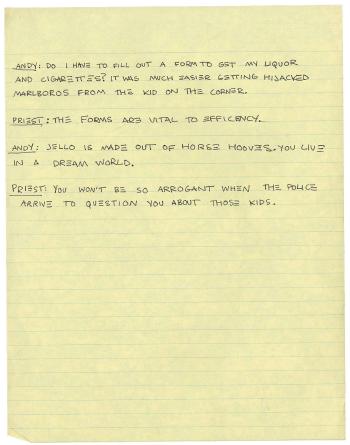 ANDY: DO I HAVE TO FILL OUT A FORM TO GET MY LIQUOR
AND CIGARETTES? IT WAS MUCH EASIER GETTING HIJACKED
MARLBOROS FROM THE KID ON THE CORNER.
PRIEST: THE FORMS ARE VITAL TO EFFICENCY.
ANDY: JELLO IS MADE OUT OF HORSE HOOVES. YOU LIVE
IN A DREAM WORLD.
PRIEST: YOU WON'T BE SO ARROGANT WHEN THE POLICE
ARRIVE TO QUESTION YOU ABOUT THOSE KIDS.